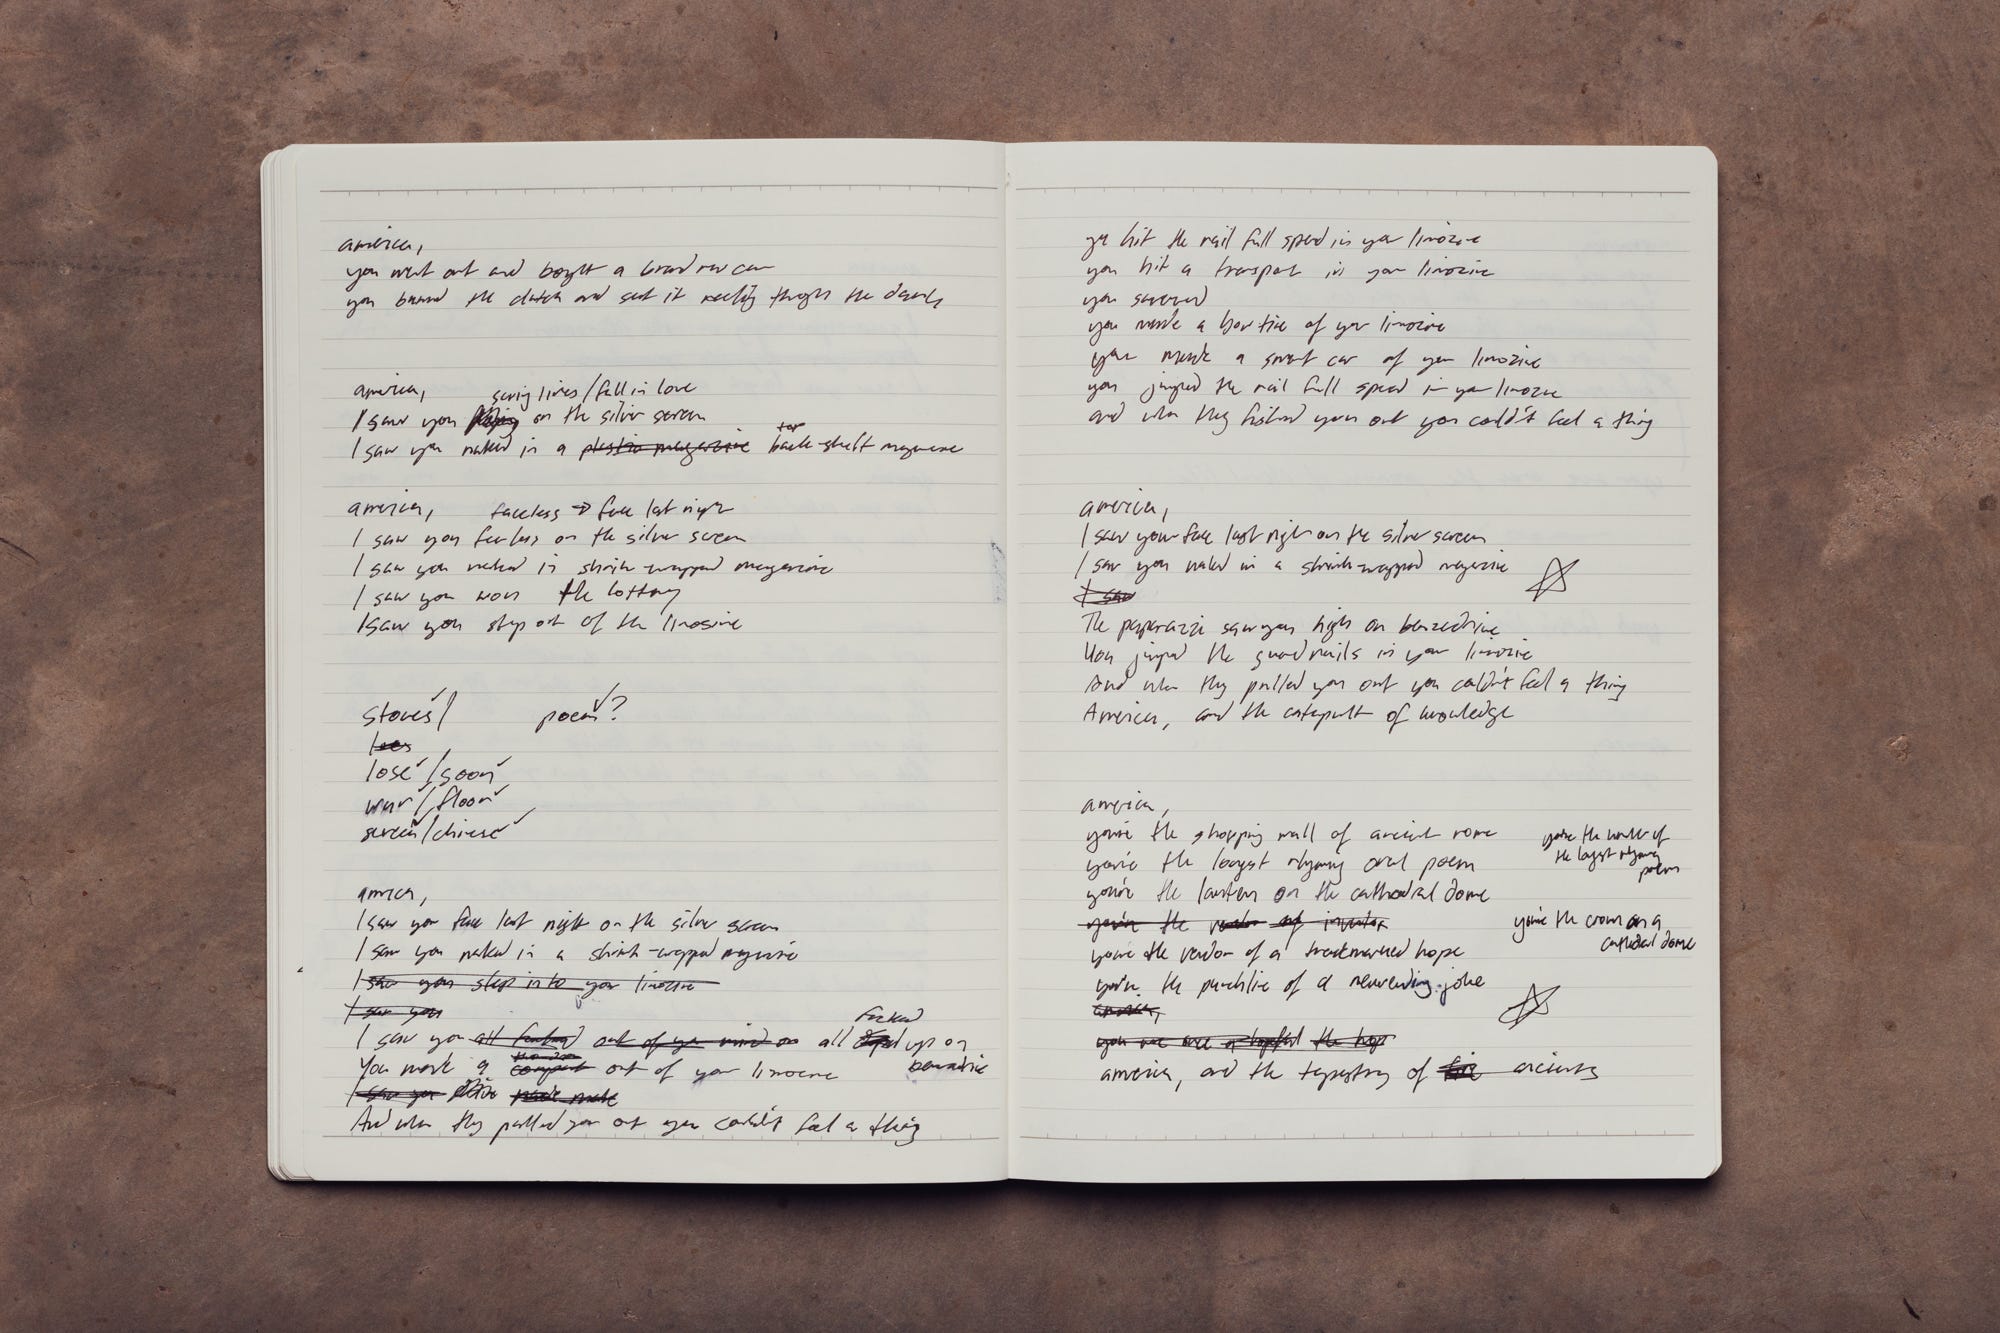 america,
you went out and bought a brand new car
you burned the clutch and sent it reeling through the
america,
saving lives / fall in love
I saw you on the silver screen
I saw you naked in a plastic magazine top back-shelf magazine
america,
faceless → face last night
I saw you on the silver screen
I saw you naked in shrink-wrapped magazine
I saw you won the lottery
I saw you step out of the limosine
stoves/ poem?
lose/soon
war/floor
screen/chinese
america,
I saw your face last night on the silver screen
I saw you naked in a shrink-wrapped magazine
I saw you step into your limozine
I saw you
fucked
I saw you all fucked out of your mind on all up on
benzedrine
You made a out of your limozine
I saw you
And when they pulled you out you couldn't feel a thing
ya hit the rail full speed in your limozine
you hit a transport in your limozine
you swerved
you made a bow tie of your limozine
you made a smart car of your limozine
you jumped the rail full speed in your limozine
and when they fished you out you couldn't feel a thing
america,
I saw your face last night on the silver screen
I saw you naked in a shrink-wrapped magazine
I saw
The paparazzi saw you high on benzedrine
You jumped the guardrails in your limozine
And when they pulled you out you couldn't feel a thing
America, and the catapult of knowledge
america,
you're the shopping mall of ancient rome
you're the longest rhyming oral poem
you're the of
the longest rhyming
poem
you're the lantern on the cathedral dome
you're the vendor of
you're the crown on a
cathedral dome
you're the vendor of a trademarked hope
you're the punchline of a neverending joke
america,
you are the hope
america, and the tapestry of ancients